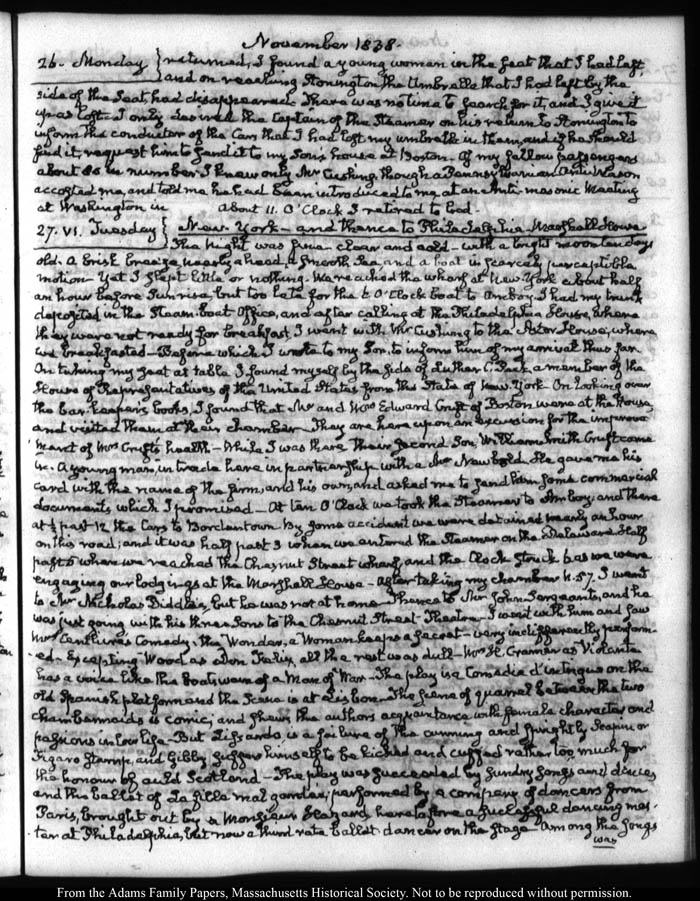 November 1838.
26. Monday } returned, I found a young woman in the seat that I had left,
and on reaching Stonington the Umbrella that I had left by the
side of the Seat had disappeared. There was no time to search for it, and I give it
up as lost. I only desired the Captain of the Steamer on his return to Stonington to
inform the conductor of the Cars that I had left my umbrella in them, and if he should
find it, request him to send it to my Son's house at Boston. Of my fellow passengers
about 86 in number I knew only Mr Cushing, though a Pennsylvanian Anti-Mason
accosted me, and told me he had been introduced to me at an Anti-masonic Meeting
at Washington in about 11. O'Clock I retired to bed.
27. VI. Tuesday } New-York—and thence to Philadelphia—Marshall House
The night was fine clear and cold—with a bright moon ten days
old. A brisk breeze, nearly ahead, a smooth Sea and a boat in scarcely perceptible
motion—Yet I slept little or nothing. We reached the wharf at New York about half
an hour before Sun rise, but too late for the 6 O'Clock boat to Amboy. I had my trunk
deposited in the Steam-boat Office, and after calling at the Philadelphia House, where
they were not ready for breakfast, I went with Mr Cushing to the Astor House, where
we breakfasted—Before which I wrote to my Son, to inform him of my arrival thus far.
On taking my seat at table I found myself by the side of Luther C. Peck, a member of the
House of Representatives of the United States from the State of New York. On looking over
the bar-keepers books, I found that Mr and Mrs Edward Cruft of Boston were at the House,
and visited them at their chamber—They are here upon an excursion for the improve
ment of Mrs Cruft's health—While I was there their second Son, William Smith Cruft came
in. A young man, in trade here in partnership with a Mr Newbold. He gave me his
card with the name of the firm, and his own, and asked me to send him some commercial
documents, which I promised—At ten O'Clock we took the Steamer to Amboy; and there
at ½ past 12 the Cars to Bordentown. By some accident we were detained nearly an hour
on this road; and it was half past 3 when we entered the Steamer on the Delaware. Half
past 5 when we reached the Chesnut Street wharf, and the Clock struck 6 as we were
engaging our lodgings at the Marshall House—After taking my chamber N. 57. I went
to Mr Nicholas Biddle's, but he was not at home. Thence to Mr John Sergeant's, and he
was just going with his three Sons to the Chesnut Street Theatre. I went with him and saw
Mrs Centlivre's Comedy—the Wonder, a Woman keeps a Secret—very indifferently perform-
-ed. Excepting Wood as Don Felix, all the rest was dull—Mrs H. Cramer as Violante
has a voice like the Boatswain of a Man of War—The play is a Comedie d'intrigue on the
old Spanish platform and the Scene is at Lisbon—The scene of quarrel between the two
chambermaids is comic; and shews the authors acquaintance with female character and
passions in low life. But Lissardo is a failure of the cunning and sprightly Scapin or
Figaro Stamp, and Gibby suffers himself to be kicked and cuffed rather too much for
the honour of auld Scotland—The play was succeeded by sundry songs and dances
and the ballet of La fille mal gardée, performed by a company of dancers from
Paris, brought out by a Monsieur Hazard, heretofore a successful dancing mas-
ter at Philadelphia, but now a third rate ballet dancer on the Stage—Among the Songs
was
From the Adams Family Papers, Massachusetts Historical Society. Not to be reproduced without permission.